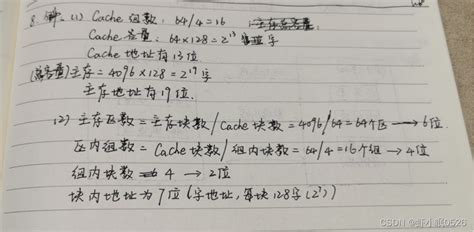 8. 解. (1) Cache 组数: 64/4=16
Cache 容量: 64×128=2¹³ 字
Cache 地址有13位
(总容量)主存=4096×128=2¹⁹字
主存地址有19位.
(2) 主存区数=主存块数/Cache块数=4096/64=64个区→6位
区内组数=Cache块数/组内块数=64/4=16个组→4位
组内块数 4→2位
块内地址为7位(字地址,每块128字(2⁷))
CSDN @虾小眠0526